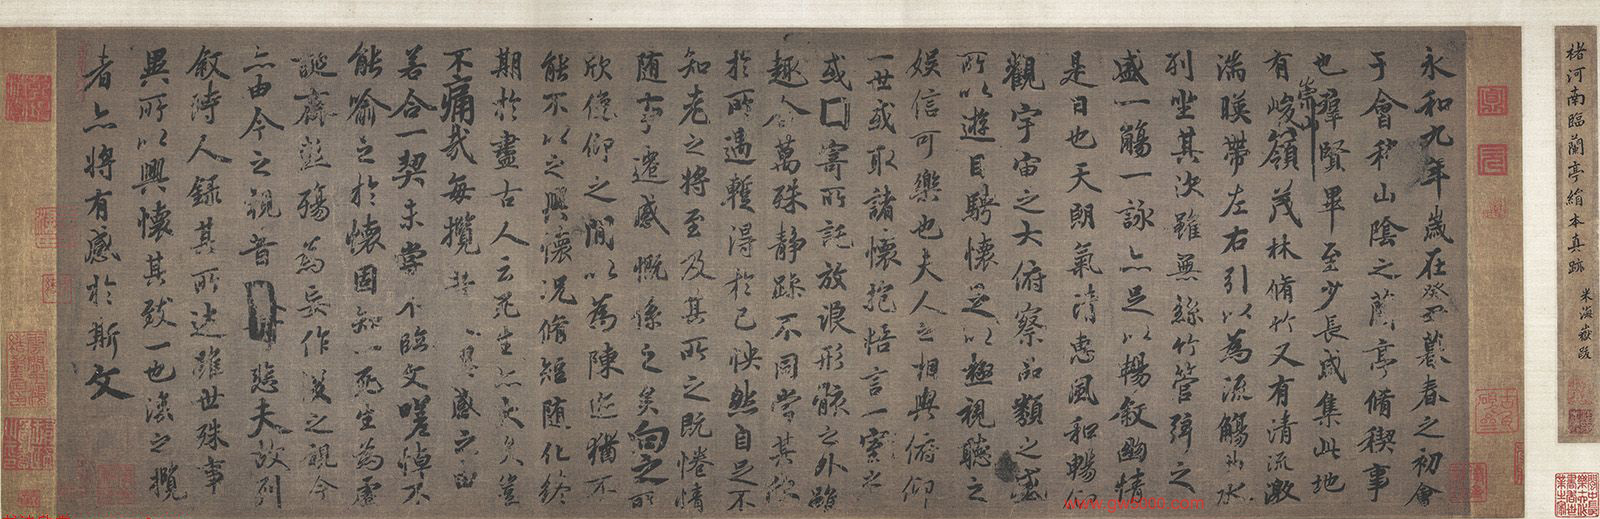 褚河南臨蘭亭絹本真跡 米海嶽跋
永和九年歲在癸丑暮春之初會
于會稽山陰之蘭亭脩稧事
也羣賢畢至少長咸集此地
有崇山峻嶺茂林脩竹又有清流激
湍暎帶左右引以為流觴曲水
列坐其次雖無絲竹管弦之
盛一觴一詠亦足以暢敘幽情
是日也天朗氣清惠風和暢仰
觀宇宙之大俯察品類之盛
所以遊目騁懷足以極視聽之
娛信可樂也夫人之相與俯仰
一世或取諸懷抱悟言一室之
或寄所託放浪形骸之外雖
趣舍萬殊靜躁不同當其欣
於所遇暫得於己怏然自足不
知老之將至及其所之既惓情
隨事遷感慨係之矣向之所
欣俛仰之閒以為陳迹猶不
能不以之興懷況脩短隨化終
期於盡古人云死生亦大矣豈
不痛哉每攬昔興感之由
若合一契未嘗不臨文嗟悼不
能喻之於懷固知一死生為虛
誕齊彭殤為妄作後之視今
亦由今之視昔悲夫故列
敘時人錄其所述雖世殊事
異所以興懷其致一也後之攬
者亦將有感於斯文
www.gw8000.com